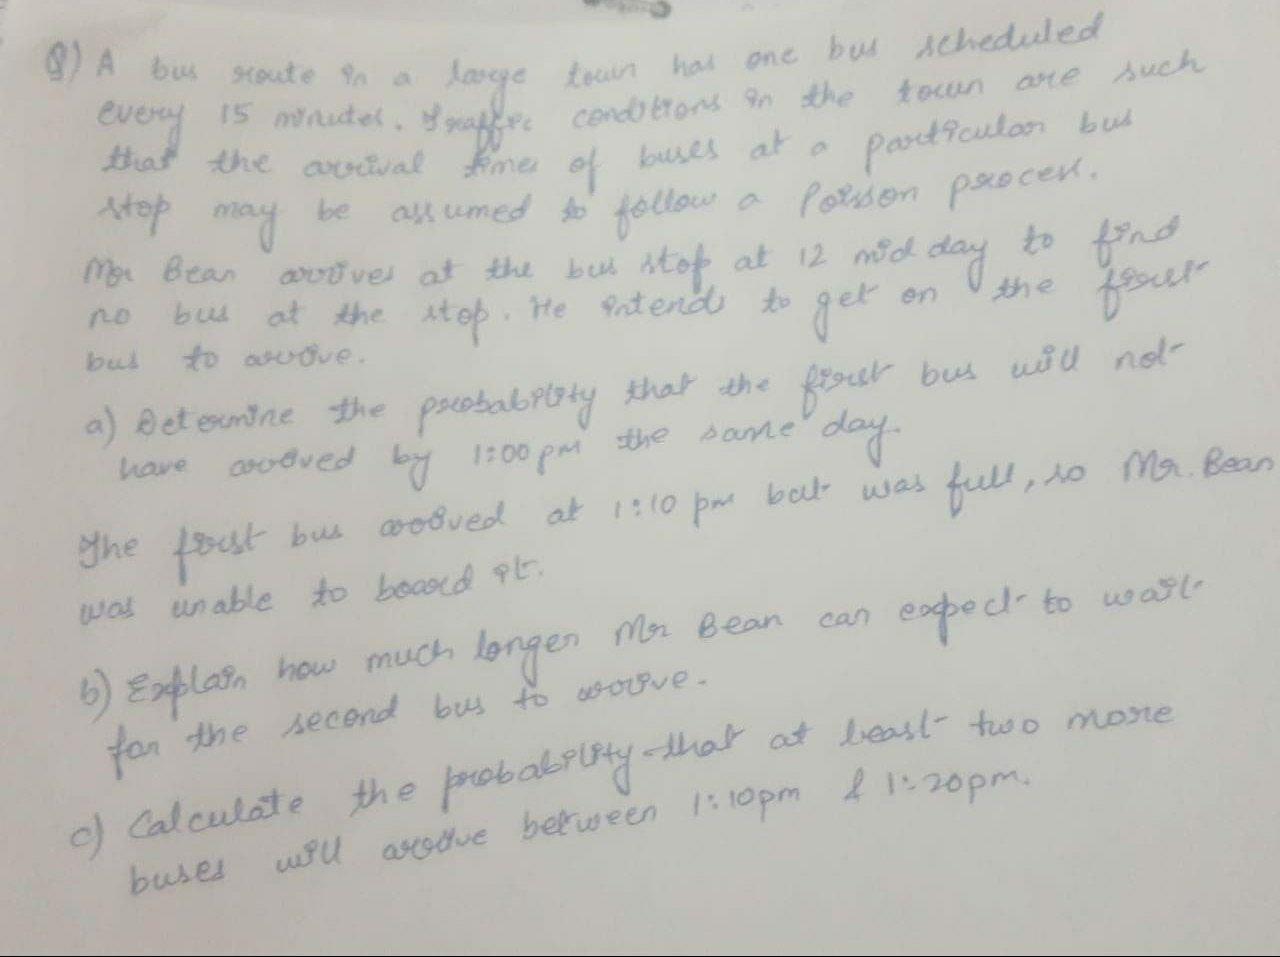 Q) A bus route in a large town has one bus scheduled
every 15 minutes. Traffic conditions in the town are such
that the arrival times of buses at a particular bus
stop may be assumed to follow a Poisson process.
Mr Bean arrives at the bus stop at 12 mid day to find
no bus at the stop. He intends to get on the first
bus to arrive.
a) Determine the probability that the first bus will not
have arrived by 1:00 pm the same day.
The first bus arrived at 1:10 pm but was full, so Mr. Bean
was unable to board it.
b) Explain how much longer Mr Bean can expect to wait
for the second bus to arrive.
c) Calculate the probability that at least two more
buses will arrive between 1:10pm & 1:20pm.